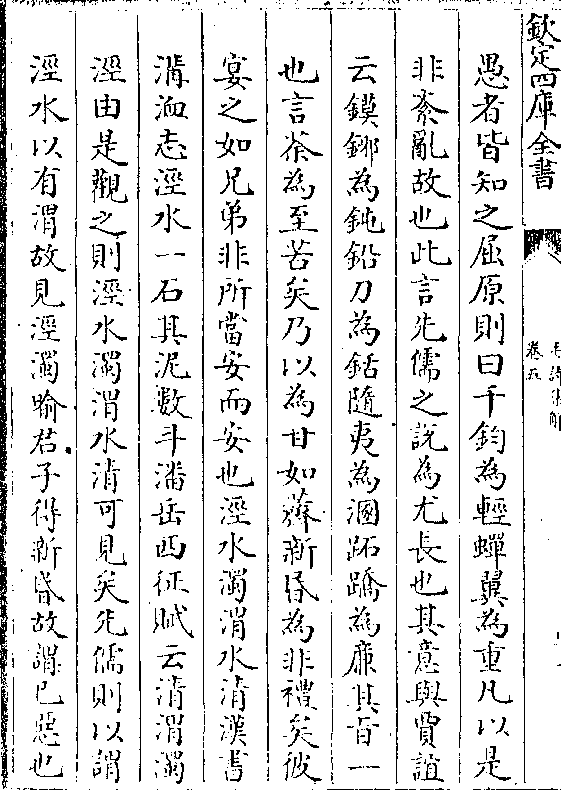 欽定四庫全書
卷五
愚者皆知之屈原則曰千鈞為輕蟬翼為重凡以是
非紊亂故也此言先儒之說為尤長也其意與賈誼
云鏌鋣為鈍鉛刀為銛隨夷為溷跖蹻為廉其旨一
也言荼為至苦矣乃以為甘如薺新昏為非禮矣彼
宴之如兄弟非所當安而安也涇水濁渭水清漢書
溝洫志涇水一石其泥數斗潘岳西征賦云清渭濁
涇由是觀之則涇水濁渭水清可見矣先儒則以謂
涇水以有渭故見涇濁喻君子得新昏故謂己惡也